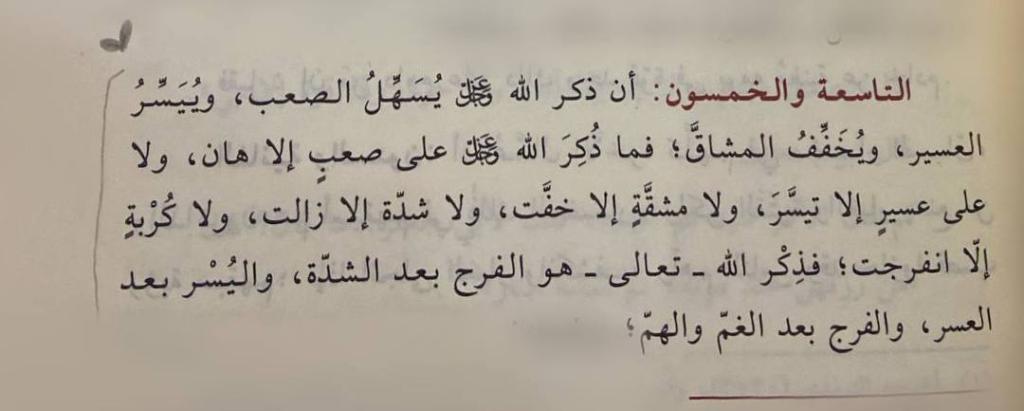 التاسعة والخمسون: أن ذكر الله ﷿ يُسَهِّلُ الصعب، ويُيَسِّرُ
العسير، ويُخَفِّفُ المشاقَّ؛ فما ذُكِرَ الله ﷿ على صعبٍ إلا هان، ولا
على عسيرٍ إلا تيسَّرَ، ولا مشقَّةٍ إلا خفَّت، ولا شدّة إلا زالت، ولا كُرْبةٍ
إلّا انفرجت؛ فذِكْر الله ـ تعالى ـ هو الفرج بعد الشدّة، واليُسْر بعد
العسر، والفرج بعد الغمّ والهمّ؛